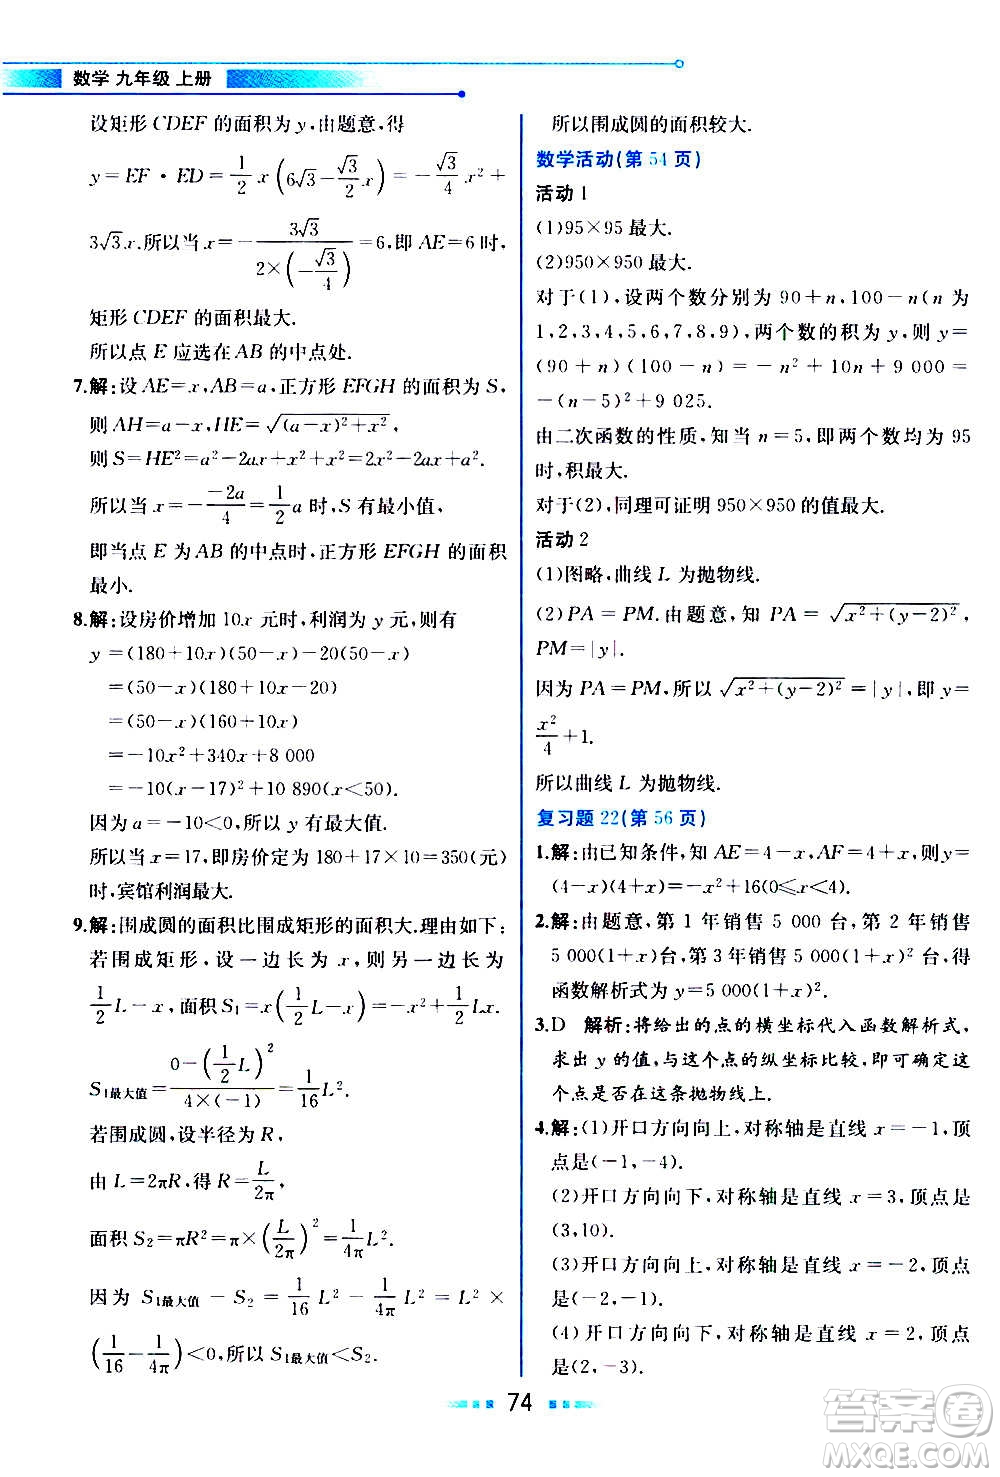 数学 九年级 上册
设矩形 CDEF 的面积为 y,由题意,得
y=EF·ED=\frac{1}{2}x(6√3-\frac{√3}{2}x)=-\frac{√3}{4}x²+
3√3x.所以当 x=-\frac{3√3}{2×(-\frac{√3}{4})}=6,即 AE=6 时,
矩形 CDEF 的面积最大.
所以点 E 应选在 AB 的中点处.
7.解:设 AE=x,AB=a,正方形 EFGH 的面积为 S,
则 AH=a-x,HE=√((a-x)²+x²),
则 S=HE²=a²-2ax+x²+x²=2x²-2ax+a².
所以当 x=-\frac{-2a}{4}=\frac{1}{2}a 时,S 有最小值,
即当点 E 为 AB 的中点时,正方形 EFGH 的面积
最小.
8.解:设房价增加 10x 元时,利润为 y 元,则有
y=(180+10x)(50-x)-20(50-x)
=(50-x)(180+10x-20)
=(50-x)(160+10x)
=-10x²+340x+8 000
=-10(x-17)²+10 890(x<50).
因为 a=-10<0,所以 y 有最大值.
所以当 x=17,即房价定为 180+17×10=350(元)
时,宾馆利润最大.
9.解:围成圆的面积比围成矩形的面积大.理由如下:
若围成矩形,设一边长为 x,则另一边长为
\frac{1}{2}L-x,面积 S₁=x(\frac{1}{2}L-x)=-x²+\frac{1}{2}Lx.
S₁最大值=\frac{0-(\frac{1}{2}L)²}{4×(-1)}=\frac{1}{16}L².
若围成圆,设半径为 R,
由 L=2πR,得 R=\frac{L}{2π},
面积 S₂=πR²=π×(\frac{L}{2π})²=\frac{1}{4π}L².
因为 S₁最大值-S₂=\frac{1}{16}L²-\frac{1}{4π}L²=L²×
(\frac{1}{16}-\frac{1}{4π})<0,所以 S₁最大值<S₂.
所以围成圆的面积较大.
数学活动(第 54 页)
活动 1
(1)95×95 最大.
(2)950×950 最大.
对于(1),设两个数分别为 90+n,100-n(n 为
1,2,3,4,5,6,7,8,9),两个数的积为 y,则 y=
(90+n)(100-n)=-n²+10n+9 000=
-(n-5)²+9 025.
由二次函数的性质,知当 n=5,即两个数均为 95
时,积最大.
对于(2),同理可证明 950×950 的值最大.
活动 2
(1)图略,曲线 L 为抛物线.
(2)PA=PM.由题意,知 PA=√(x²+(y-2)²),
PM=|y|.
因为 PA=PM,所以 √(x²+(y-2)²)=|y|,即 y=
\frac{x²}{4}+1.
所以曲线 L 为抛物线.
复习题 22(第 56 页)
1.解:由已知条件,知 AE=4-x,AF=4+x,则 y=
(4-x)(4+x)=-x²+16(0≤x<4).
2.解:由题意,第 1 年销售 5 000 台,第 2 年销售
5 000(1+x)台,第 3 年销售 5 000(1+x)²台,得
函数解析式为 y=5 000(1+x)².
3.D 解析:将给出的点的横坐标代入函数解析式,
求出 y 的值,与这个点的纵坐标比较,即可确定这
个点是否在这条抛物线上.
4.解:(1)开口方向向上,对称轴是直线 x=-1,顶
点是(-1,-4).
(2)开口方向向下,对称轴是直线 x=3,顶点是
(3,10).
(3)开口方向向上,对称轴是直线 x=-2,顶点是
(-2,-1).
(4)开口方向向下,对称轴是直线 x=2,顶点是
(2,-3).
74
答案圈
MXQE.COM